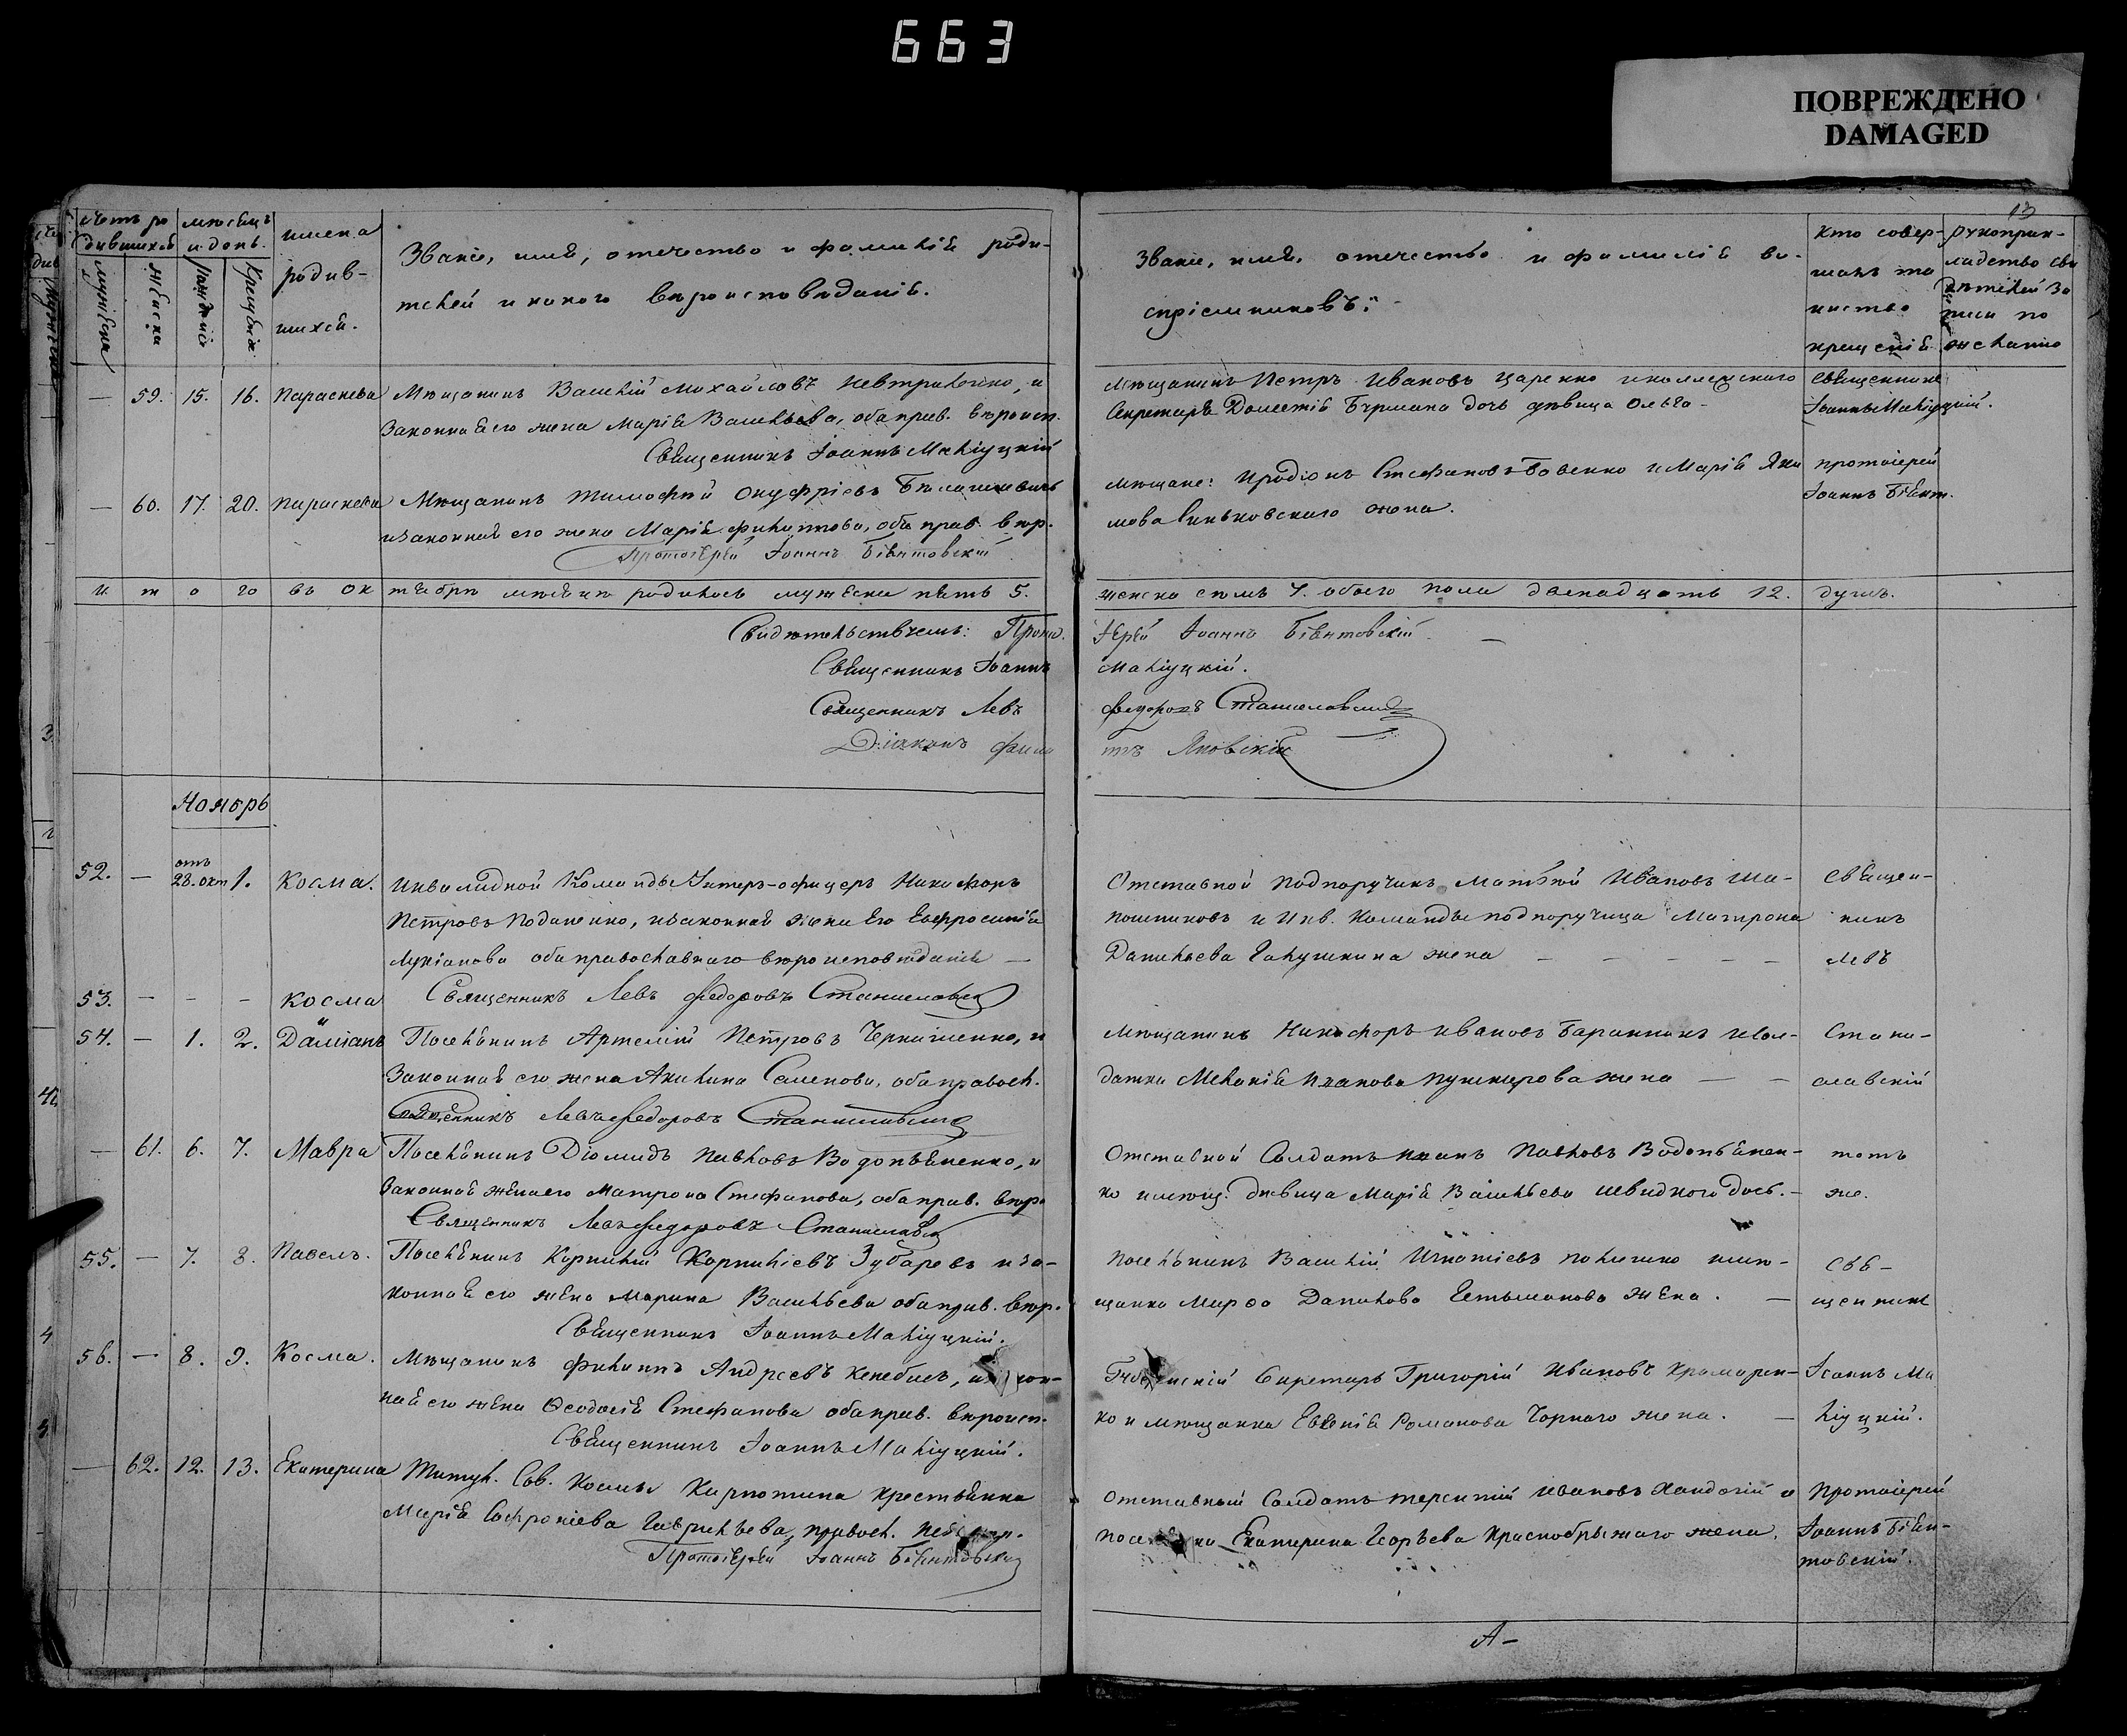 663
ПОВРЕЖДЕНО
DAMAGED
13
счетъ ро
дившихся
мужеска
женска
мѣсяцъ
и день.
рожденіе
крещеніе
имена
родив-
шихся.
Званіе, имя, отечество и фамилія роди-
телей и какого вѣроисповѣданія.
Званіе, имя, отечество и фамилія во-
спріемниковъ.
Кто совер-
шалъ та
инство
крещенія
рукоприк-
ладство сви
дѣтелей за
писи по
желанію
— 59. 15. 16. Параскева Мѣщанинъ Василій Михайловъ и
Законная его жена Марія Васильева, оба прав. вѣроисп.
Священникъ Іоаннъ Малiуцкій
Мѣщанинъ Петръ Ивановъ Царенко и коллежскаго
Секретаря Дометія Бурмана дочь дѣвица Ольга-
Священникъ
Іоаннъ Малiуцкій.
— 60. 17. 20. Параскева Мѣщанинъ Тимофѣй Онуфріевъ
и законная его жена Марія Филиппова, оба прав. вѣр.
Протоіерей Іоаннъ
мѣщане: Иродіонъ Стефановъ Бовенко и Марія Яки
мова Синьковскаго жена.
протоіерей
Іоаннъ
и т о го въ ок тябрѣ мѣсяцѣ родилось мужеска пять 5.
женска семъ 7. обоего пола двенадцать 12. душъ.
Свидѣтельствуемъ: Прото.
іерей Іоаннъ
Священникъ Іоаннъ
Малiуцкій.
Священникъ Левъ
Федоровъ Станиславскій
Діаконъ
Яновскій
Ноябрь
52. — отъ 28. окт 1. Косма. Инвалидной Команды Унтеръ-офицеръ Никифоръ
Петровъ и законная жена его Евфросинія
Лукіанова оба православнаго вѣроисповѣданія —
Отставной подпоручикъ Матѳей Ивановъ Ша-
пошниковъ и Инв. Команды подпоручица Матрона
Данильева Галушкина жена — — — — —
Священ-
никъ
Левъ
53. — — — Косма Священникъ Левъ Федоровъ Станиславскій
и
54. — 1. 2. Даміанъ Поселянинъ Артемій Петровъ и
Законная его жена Акилина Семенова, оба правосл.
Священникъ Левъ Федоровъ Станиславскій
Мѣщанинъ Никифоръ Ивановъ Баранникъ и сол-
датка Меланія Иванова Пушкарова жена — —
Стани-
славскій
— 61. 6. 7. Мавра Поселянинъ Діомидъ Павловъ Водопьяненко, и
Законная жена его Матрона Стефанова, оба прав. вѣр.
Священникъ Левъ Федоровъ Станиславскій
Отставной Солдатъ Иванъ Павловъ Водопьянен-
ко и дѣвица Марія Васильева
тотъ
же.
55. — 7. 8. Павелъ. Поселянинъ Корнилій Корниліевъ Зубаревъ и за-
конная его жена Марина Васильева оба прав. вѣр.
Священникъ Іоаннъ Малiуцкій.
Поселянинъ Василій Игнатіевъ и мѣ-
щанка Марѳа Данилова Гетьманова жена. —
Свя-
щенникъ
56. — 8. 9. Косма. Мѣщанинъ Филиппъ Андреевъ
ная его жена Ѳеодосія Стефанова оба прав. вѣроисп.
Священникъ Іоаннъ Малiуцкій.
Губернскій Секретарь Григорій Ивановъ Крамарен-
ко и мѣщанка Евгенія Романова Чорнаго жена. —
Іоаннъ Ма
лiуцкій.
— 62. 12. 13. Екатерина Титул. Сов. Космы Карпотина крестьянка
Марія Софроніева Гаврильева, правосл.
Протоіерей Іоаннъ
Отставный Солдатъ Терентій Ивановъ и
Екатерина Георгіева Краснобрыжаго жена.
Протоіерей
Іоаннъ
А-